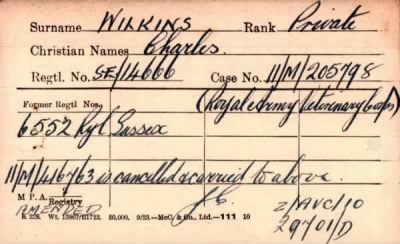 Surname WILKINS Rank Private
Christian Names Charles.
Regtl. No. SE/14660 Case No. 11/M/205798
Former Regtl Nos. (Royal Army Veterinary Corps)
6552 Ryl Sussex
11/M/416763 is cancelled & carried to above.
M P A 9
Registry
AMENDED
2/AVC/10
29701/D
E 228. Wt. 13867/B1723. 50,000. 9/23.—McC. & Co., Ltd.—111 10